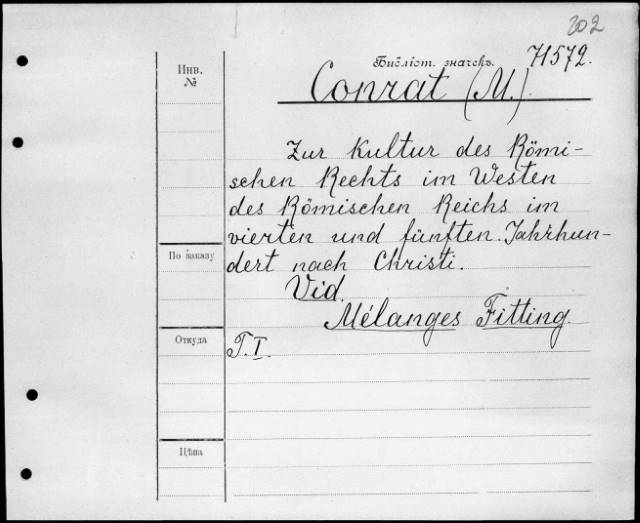 202
Инв. №
Библіот. значекъ. H572.
Conrat (M.).
Zur Kultur des Römi-
schen Rechts im Westen
des Römischen Reichs im
vierten und fünften Jahrhun-
По заказу
dert nach Christi.
Vid.
Mélanges Fitting.
Откуда
T. I.
Цѣна